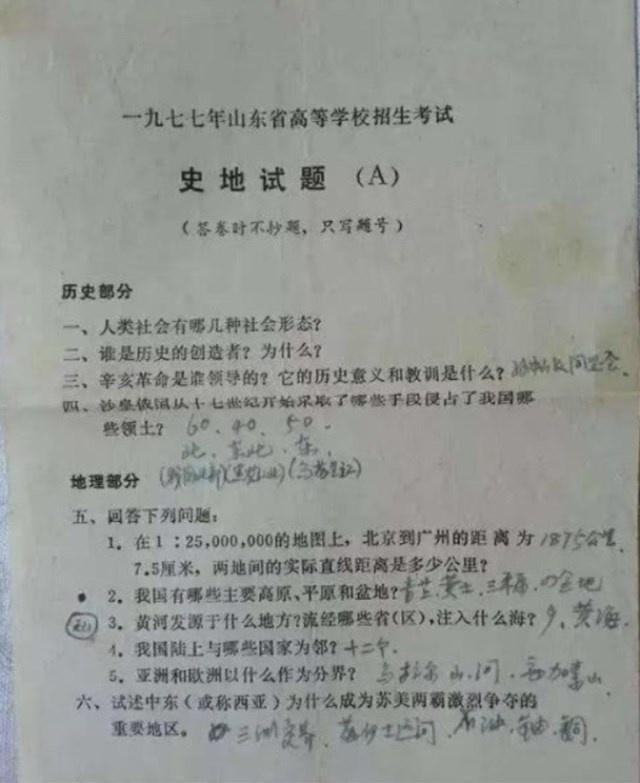 一九七七年山东省高等学校招生考试
史地试题（A）
（答卷时不抄题，只写题号）
历史部分
一、人类社会有哪几种社会形态？
二、谁是历史的创造者？为什么？
三、辛亥革命是谁领导的？它的历史意义和教训是什么？ 同盟会
四、沙皇俄国从十七世纪开始采取了哪些手段侵占了我国哪
些领土？ 60、40、50.
北、东北、东、
地理部分
五、回答下列问题：
1．在1∶25,000,000的地图上，北京到广州的距离为 1875公里
7.5厘米，两地间的实际直线距离是多少公里？
2．我国有哪些主要高原、平原和盆地？青兰、黄土、三平原、四盆地
3．黄河发源于什么地方？流经哪些省（区），注入什么海？9、黄海
4．我国陆上与哪些国家为邻？十二个.
5．亚洲和欧洲以什么作为分界？乌拉尔山、河、高加索山
六、试述中东（或称西亚）为什么成为苏美两霸激烈争夺的
重要地区。三洲交界 苏伊士运河、石油、铀、铜